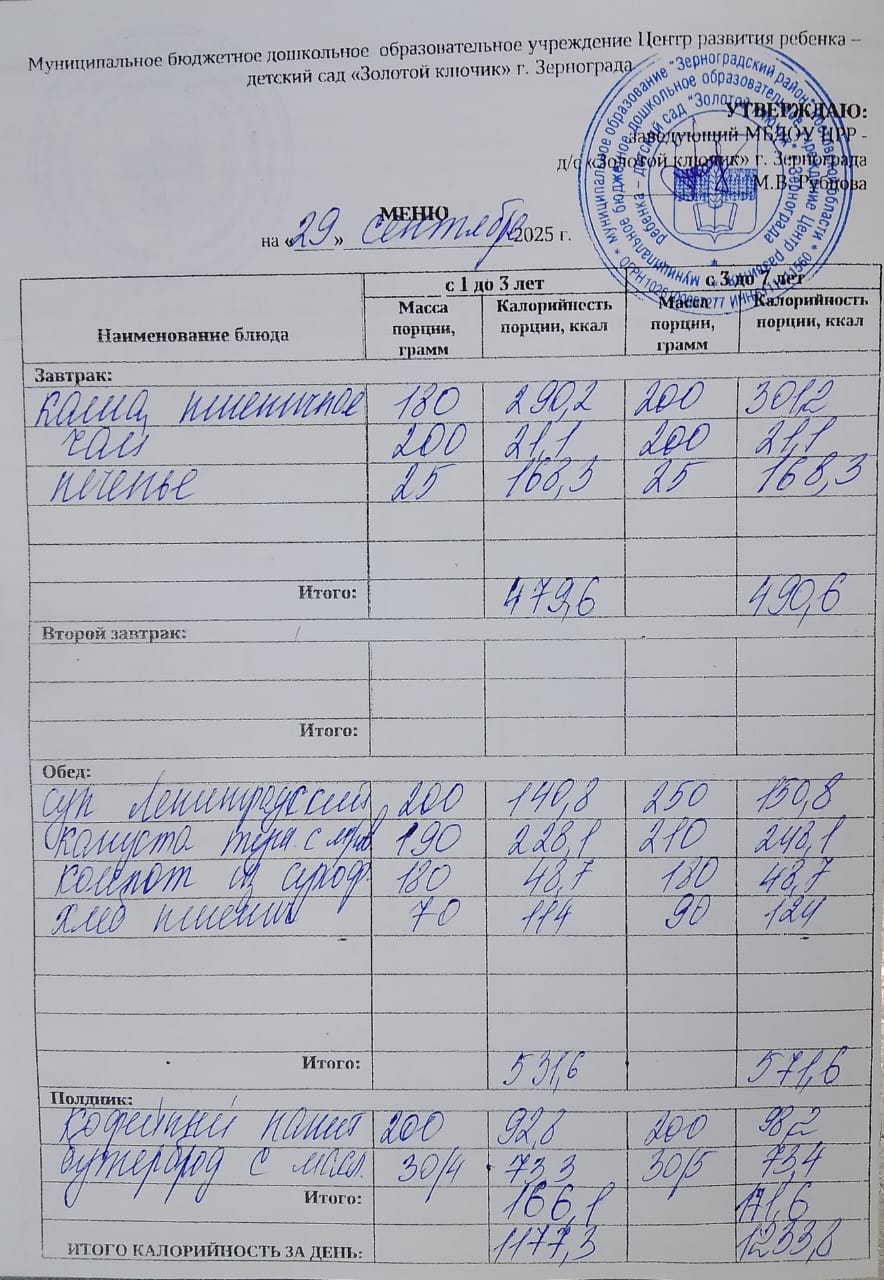 Муниципальное бюджетное дошкольное образовательное учреждение Центр развития ребенка –
детский сад «Золотой ключик» г. Зернограда
УТВЕРЖДАЮ:
Заведующий МБДОУ ЦРР -
д/с «Золотой ключик» г. Зернограда
М.В. Рубцова
МЕНЮ
на «29» сентября 2025 г.
Наименование блюда с 1 до 3 лет с 3 до 7 лет
Масса порции, грамм Калорийность порции, ккал Масса порции, грамм Калорийность порции, ккал
Завтрак:
каша пшеничное 180 290,2 200 301,2
чай 200 21,1 200 21,1
печенье 25 168,3 25 168,3
Итого: 479,6 490,6
Второй завтрак:
Итого:
Обед:
суп Ленинградский 200 140,8 250 150,8
капуста туш. с мяс 190 228,1 210 248,1
компот из сухоф. 180 48,7 180 48,7
хлеб пшенич 70 114 90 124
Итого: 531,6 571,6
Полдник:
кофейный напит 200 92,8 200 98,2
бутерброд с масл. 30/4 73,3 30/5 73,4
Итого: 166,1 171,6
ИТОГО КАЛОРИЙНОСТЬ ЗА ДЕНЬ: 1177,3 1233,8